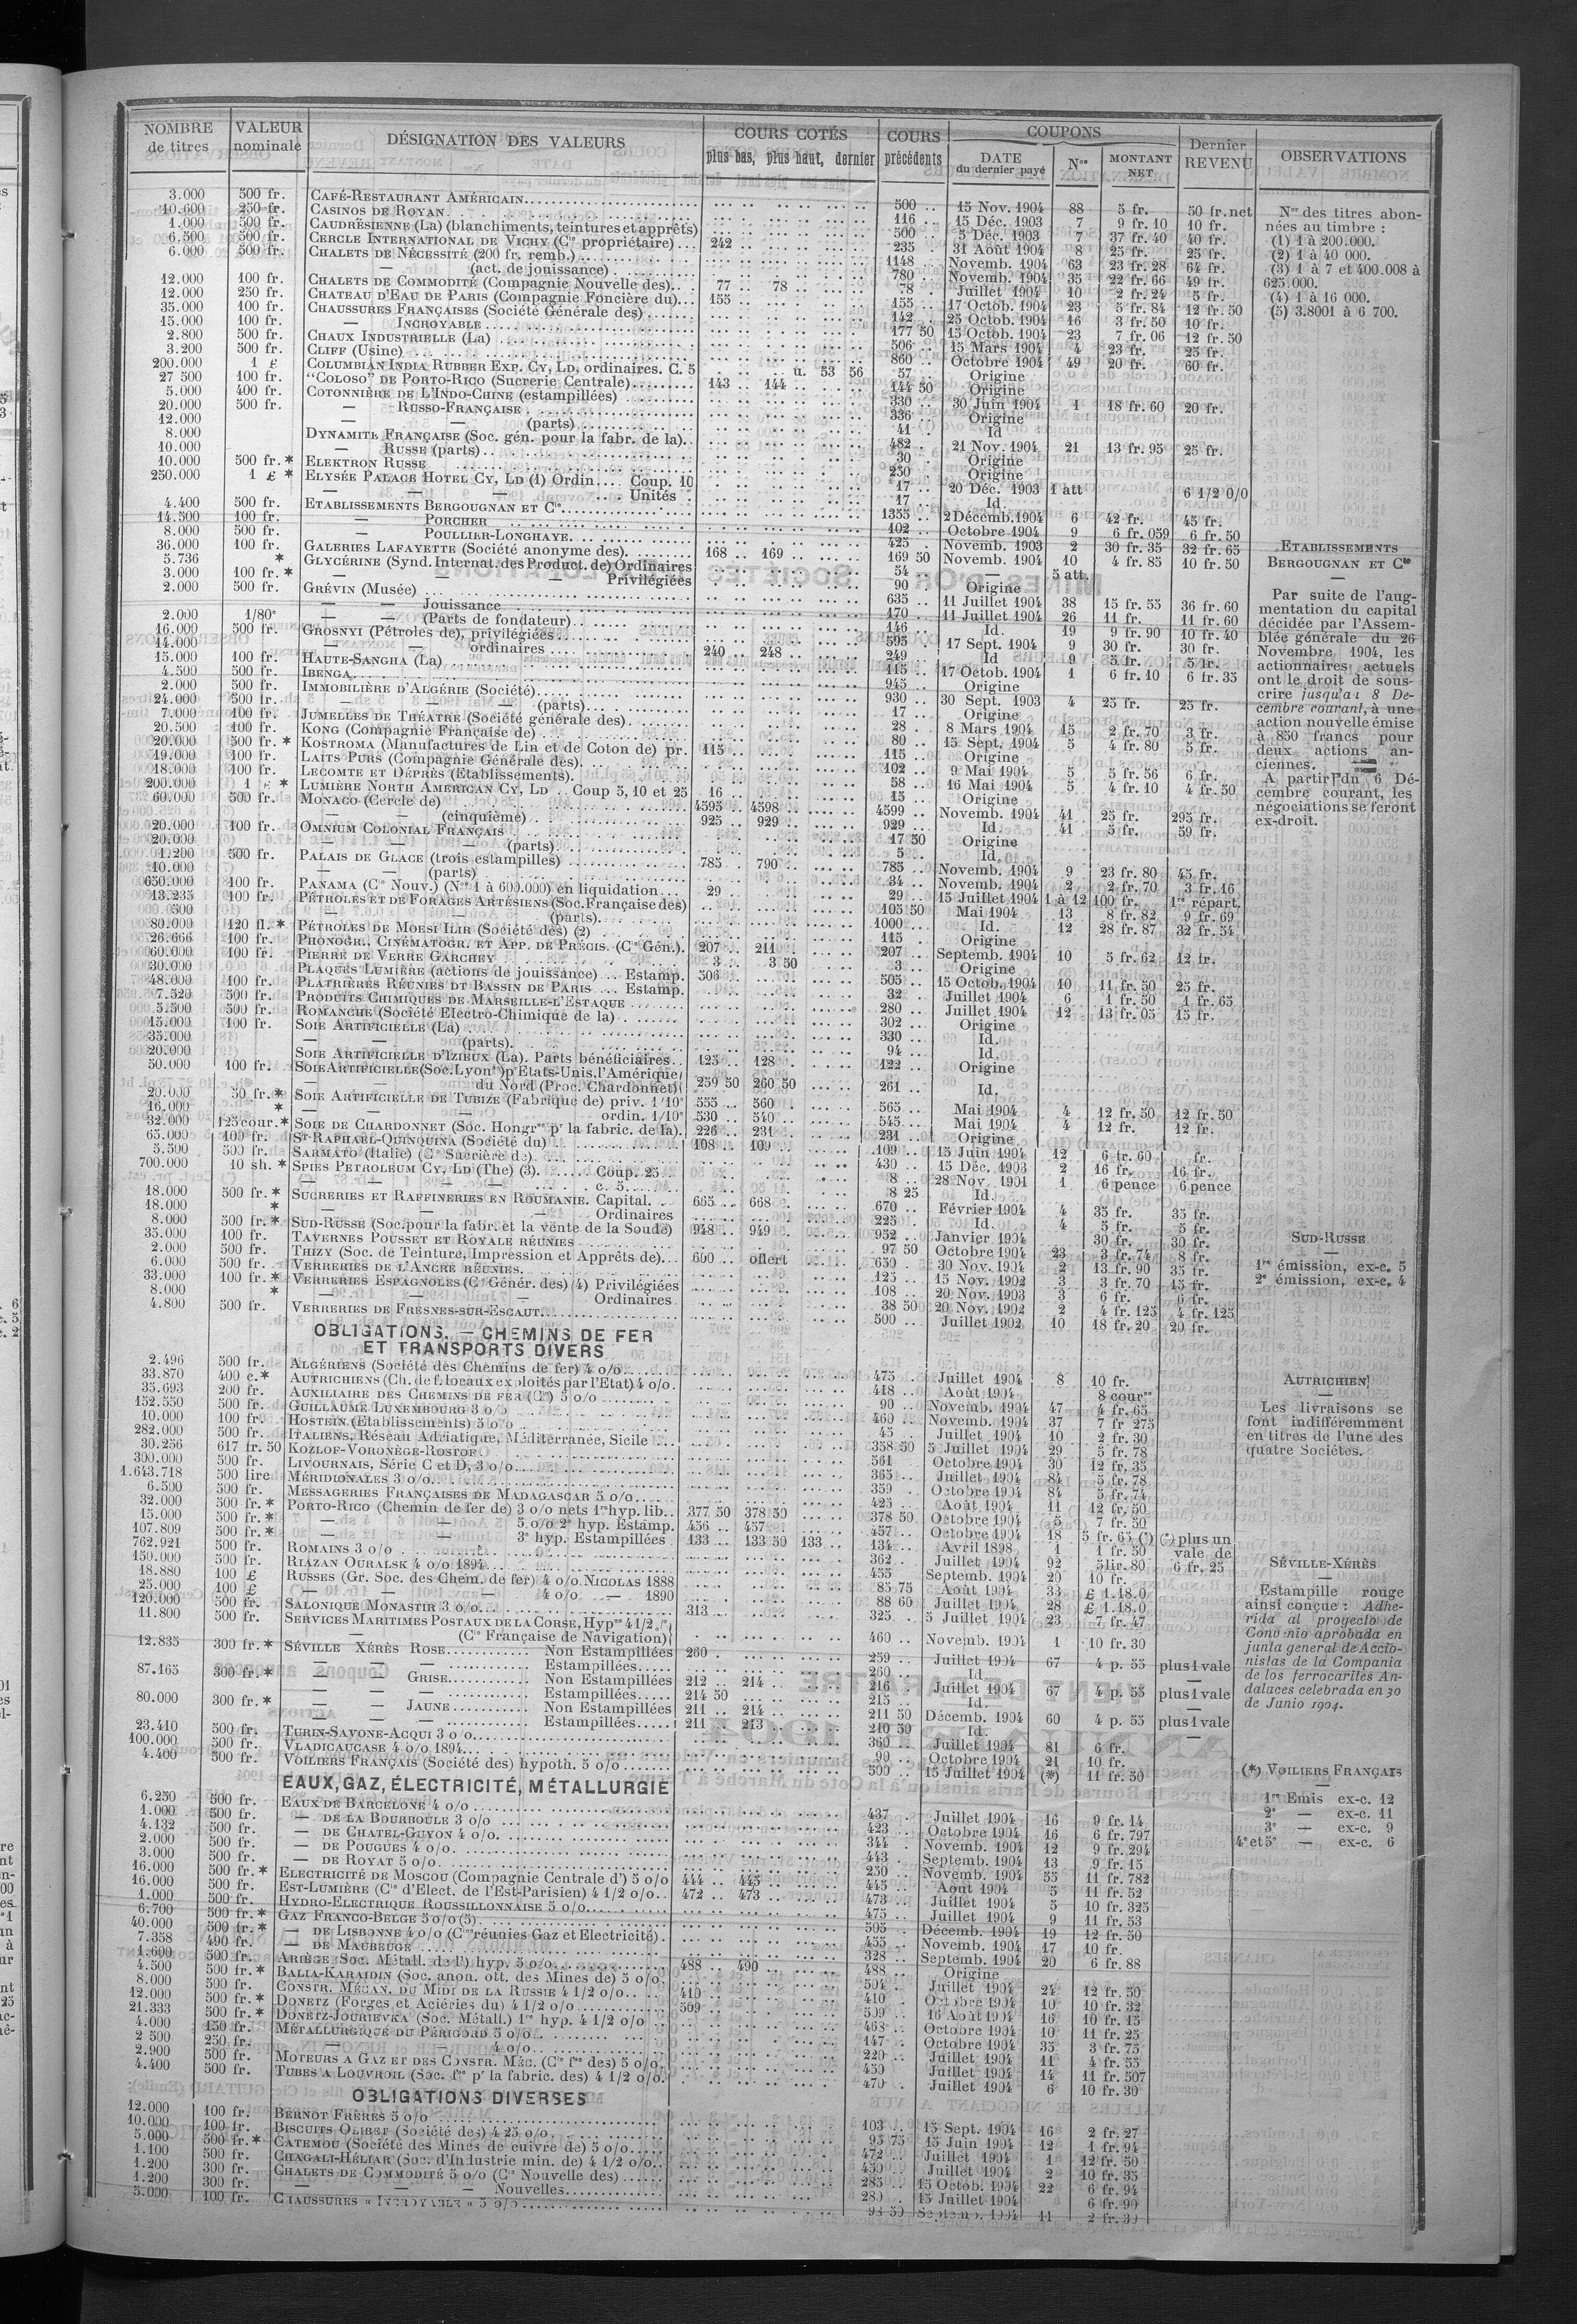 NOMBRE de titres | VALEUR nominale | DÉSIGNATION DES VALEURS | COURS COTÉS plus bas, plus haut, dernier | COURS précédents | COUPONS DATE du dernier payé | Nos | MONTANT NET | Dernier REVENU | OBSERVATIONS
3.000 500 fr. CAFÉ-RESTAURANT AMÉRICAIN 500 .. 15 Nov. 1904 88 5 fr. 50 fr. net
10.600 250 fr. CASINOS DE ROYAN 116 .. 15 Déc. 1903 7 9 fr. 10 10 fr.
1.000 500 fr. CAUDRÉSIENNE (La) (blanchiments, teintures et apprêts) 500 .. 5 Déc. 1903 7 37 fr. 40 40 fr.
6.500 500 fr. CERCLE INTERNATIONAL DE VICHY (Cie propriétaire) 242 .. 235 .. 31 Août 1904 8 25 fr. 25 fr.
6.000 500 fr. CHALETS DE NÉCESSITÉ (200 fr. remb.) 1148 .. Novemb. 1904 63 23 fr. 28 64 fr.
— (act. de jouissance) 780 .. Novemb. 1904 35 22 fr. 66 49 fr.
12.000 100 fr. CHALETS DE COMMODITÉ (Compagnie Nouvelle des) 77 .. 78 .. 78 .. Juillet 1904 10 2 fr. 24 5 fr.
12.000 250 fr. CHATEAU D'EAU DE PARIS (Compagnie Foncière du) 155 .. 155 .. 17 Octob. 1904 23 5 fr. 84 12 fr. 50
35.000 100 fr. CHAUSSURES FRANÇAISES (Société Générale des) 142 .. 25 Octob. 1904 16 3 fr. 50 10 fr.
15.000 100 fr. — INCROYABLE 177 50 15 Octob. 1904 23 7 fr. 06 12 fr. 50
2.800 500 fr. CHAUX INDUSTRIELLE (La) 506 .. 15 Mars 1904 4 23 fr. 25 fr.
3.200 500 fr. CLIFF (Usine) 860 .. Octobre 1904 49 20 fr. 60 fr.
200.000 1 £ COLUMBIAN INDIA RUBBER EXP. CY, LD, ordinaires. C. 5 u. 53 56 57 .. Origine
27 500 100 fr. "COLOSO" DE PORTO-RICO (Sucrerie Centrale) 143 .. 144 .. 144 50 Origine
5.000 400 fr. COTONNIÈRE DE L'INDO-CHINE (estampillées) 330 .. 30 Juin 1904 1 18 fr. 60 20 fr.
20.000 500 fr. — RUSSO-FRANÇAISE 336 .. Origine
12.000 — — (parts) 41 . Id
8.000 DYNAMITE FRANÇAISE (Soc. gén. pour la fabr. de la) 482 .. 21 Nov. 1904 21 13 fr. 95 25 fr.
10.000 — RUSSE (parts) 30 .. Origine
10.000 500 fr. * ELEKTRON RUSSE 250 .. Origine
250.000 1 £ * ELYSÉE PALACE HOTEL CY, LD (1) Ordin. Coup. 10 17 .. 20 Déc. 1903 1 att 6 1/2 0/0
— — — Unités 17 .. Id.
4.400 500 fr. ETABLISSEMENTS BERGOUGNAN ET Cie 1355 .. 2 Décemb. 1904 6 42 fr. 45 fr.
14.500 100 fr. — PORCHER 102 .. Octobre 1904 9 6 fr. 059 6 fr. 50
8.000 500 fr. — POULLIER-LONGHAYE 425 .. Novemb. 1903 2 30 fr. 35 32 fr. 65
36.000 100 fr. GALERIES LAFAYETTE (Société anonyme des) 168 .. 169 .. 169 50 Novemb. 1904 10 4 fr. 85 10 fr. 50
5.736 * GLYCÉRINE (Synd. Internat. des Product. de) Ordinaires 54 .. — 5 att.
3.000 100 fr. * — — Privilégiées 90 .. Origine
2.000 500 fr. GRÉVIN (Musée) 635 .. 11 Juillet 1904 38 15 fr. 55 36 fr. 60
— — Jouissance 170 .. 11 Juillet 1904 26 11 fr. 11 fr. 60
2.000 1/80e — — (Parts de fondateur) 146 .. Id. 19 9 fr. 90 10 fr. 40
16.000 500 fr. GROSNYI (Pétroles de), privilégiées 595 .. 17 Sept. 1904 9 30 fr. 30 fr.
14.000 — — ordinaires 240 .. 248 .. 249 .. Id 9 5 fr. 5 fr.
15.000 100 fr. HAUTE-SANGHA (La) 115 .. 17 Octob. 1904 1 6 fr. 10 6 fr. 35
4.500 500 fr. IBENGA 945 .. Origine
2.000 500 fr. IMMOBILIÈRE D'ALGÉRIE (Société) 930 .. 30 Sept. 1903 4 25 fr. 25 fr.
24.000 500 fr. — — — (parts) 17 .. Origine
7.000 100 fr. JUMELLES DE THÉATRE (Société générale des) 28 . 8 Mars 1904 15 2 fr. 70 3 fr.
20.500 100 fr. KONG (Compagnie Française de) 80 .. 15 Sept. 1904 5 4 fr. 80 5 fr.
20.000 500 fr. * KOSTROMA (Manufactures de Lin et de Coton de) pr. 115 .. 115 .. Origine
19.000 100 fr. LAITS PURS (Compagnie Générale des) 102 .. 9 Mai 1904 5 5 fr. 56 6 fr.
18.000 100 fr. LECOMTE ET DÉPRÈS (Etablissements) 58 .. 16 Mai 1904 5 4 fr. 10 4 fr. 50
200.000 1 £ * LUMIÈRE NORTH AMERICAN CY, LD .. Coup 5, 10 et 25 16 .. 15 .. Origine
60.000 500 fr. MONACO (Cercle de) 4595 .. 4598 .. 4599 .. Novemb. 1904 41 25 fr. 295 fr.
— — (cinquième) 925 .. 929 .. 929 .. Id. 41 5 fr. 59 fr.
20.000 100 fr. OMNIUM COLONIAL FRANÇAIS 17 50 Origine
20.000 — — — (parts) 5 .. Id.
1.200 500 fr. PALAIS DE GLACE (trois estampilles) 785 .. 790 .. 785 .. Novemb. 1904 9 23 fr. 80 45 fr.
10.000 — — (parts) 34 .. Novemb. 1904 2 2 fr. 70 3 fr. 16
650.000 100 fr. PANAMA (Cie Nouv.) (Nos 1 à 600.000) en liquidation 29 .. 29 .. 15 Juillet 1904 1 à 12 100 fr. 1re répart.
13.235 100 fr. PÉTROLES ET DE FORAGES ARTÉSIENS (Soc. Française des) 105 50 Mai 1904 13 8 fr. 82 9 fr. 69
500 — — — (parts) 1000 .. Id. 12 28 fr. 87 32 fr. 54
80.000 120 fl. * PÉTROLES DE MOESI ILIR (Société des) (2) 115 .. Origine
26.666 100 fr. PHONOGR., CINÉMATOGR. ET APP. DE PRÉCIS. (Cie Gén.) 207 .. 211 .. 207 .. Septemb. 1904 10 5 fr. 62 12 fr.
60.000 100 fr. PIERRE DE VERRE GARCHEY 3 .. 3 50 3 .. Origine
30.000 PLAQUES LUMIÈRE (actions de jouissance) ... Estamp. 506 .. 505 .. 15 Octob. 1904 10 11 fr. 50 25 fr.
48.000 100 fr. PLATRIÈRES RÉUNIES DT BASSIN DE PARIS ... Estamp. 32 . Juillet 1904 6 1 fr. 50 1 fr. 65
7.520 500 fr. PRODUITS CHIMIQUES DE MARSEILLE-L'ESTAQUE 280 .. Juillet 1904 12 13 fr. 05 15 fr.
5.500 500 fr. ROMANCHE (Société Electro-Chimique de la) 302 .. Origine
15.000 100 fr. SOIE ARTIFICIELLE (La) 330 .. Id.
35.000 — — (parts) 94 .. Id.
20.000 SOIE ARTIFICIELLE D'IZIEUX (La). Parts bénéficiaires 125 .. 128 .. 122 .. Origine
50.000 100 fr. SOIE ARTIFICIELLE (Soc. Lyonse) pr Etats-Unis. l'Amérique
— — du Nord (Proc. Chardonnet) 259 50 260 50 261 .. Id.
20.000 50 fr. * SOIE ARTIFICIELLE DE TUBIZE (Fabrique de) priv. 1/10e 555 .. 560 . 565 .. Mai 1904 4 12 fr. 50 12 fr. 50
16.000 * — — — ordin. 1/10e 530 .. 540 .. 545 .. Mai 1904 4 12 fr. 12 fr.
32.000 125 cour. * SOIE DE CHARDONNET (Soc. Hongrse pr la fabric. de la) 226 .. 231 .. 231 .. Origine
65.000 100 fr. ST-RAPHAEL-QUINQUINA (Société du) 108 .. 109 .. 109 .. 15 Juin 1904 12 6 fr. 60 fr.
5.500 500 fr. SARMATO (Italie) (Cie Sucrière de) 430 .. 15 Déc. 1903 2 16 fr. 16 fr.
700.000 10 sh. * SPIES PETROLEUM CY, LD (The) (3) Coup. 25 8 .. 28 Nov. 1901 1 6 pence 6 pence
— — — c. 5 8 25 Id.
18.000 500 fr. * SUCRERIES ET RAFFINERIES EN ROUMANIE. Capital. 665 .. 668 .. 670 .. Février 1904 4 35 fr. 35 fr.
18.000 * — — — Ordinaires 225 .. Id. 4 5 fr. 5 fr.
8.000 500 fr. * SUD-RUSSE (Soc. pour la fabr. et la vente de la Soude) 948 .. 949 .. 952 .. Janvier 1904 30 fr. 30 fr.
35.000 100 fr. TAVERNES POUSSET ET ROYALE RÉUNIES 97 50 Octobre 1904 23 3 fr. 74 8 fr.
2.000 500 fr. THIZY (Soc. de Teinture, Impression et Apprêts de) 600 .. offert 650 .. 30 Nov. 1904 2 13 fr. 90 35 fr.
6.000 500 fr. VERRERIES DE L'ANCRE RÉUNIES 125 .. 15 Nov. 1902 3 3 fr. 70 15 fr.
33.000 100 fr. * VERRERIES ESPAGNOLES (Cie Génér. des) (4) Privilégiées 108 .. 20 Nov. 1903 3 6 fr. 6 fr.
8.000 * — — Ordinaires 38 50 20 Nov. 1902 2 4 fr. 125 4 fr. 125
4.800 500 fr. VERRERIES DE FRESNES-SUR-ESCAUT 500 .. Juillet 1902 10 18 fr. 20 20 fr.
OBLIGATIONS. — CHEMINS DE FER
ET TRANSPORTS DIVERS
2.496 500 fr. ALGÉRIENS (Société des Chemins de fer) 4 o/o 475 .. Juillet 1904 8 10 fr.
33.870 400 c. * AUTRICHIENS (Ch. de f. locaux exploités par l'Etat) 4 o/o 418 .. Août 1904 8 cour.
35.693 200 fr. AUXILIAIRE DES CHEMINS DE FER (Cie) 5 o/o 90 .. Novemb. 1904 47 4 fr. 65
152.550 500 fr. GUILLAUME LUXEMBOURG 3 o/o 460 .. Novemb. 1904 37 7 fr 275
10.000 100 fr. HOSTEIN (Etablissements) 5 o/o 45 . Juillet 1904 10 2 fr. 30
282.000 500 fr. ITALIENS, Réseau Adriatique, Méditerranée, Sicile 358 50 5 Juillet 1904 29 5 fr. 78
30.256 617 fr. 50 KOZLOF-VORONÈGE-ROSTOF 561 Octobre 1904 30 12 fr. 35
300.000 500 fr. LIVOURNAIS, Série C et D, 3 o/o 365 .. Juillet 1904 84 5 fr. 78
1.643.718 500 lire MÉRIDIONALES 3 o/o 359 . Octobre 1904 84 5 fr. 74
6.500 500 fr. MESSAGERIES FRANÇAISES DE MADAGASCAR 5 o/o 425 .. Août 1904 11 12 fr. 50
32.000 500 fr. * PORTO-RICO (Chemin de fer de) 3 o/o nets 1re hyp. lib. 377 50 378 50 378 50 Octobre 1904 5 7 fr. 50
15.000 500 fr. * — — 5 o/o 2e hyp. Estamp. 456 .. 457 457 . Octobre 1904 18 5 fr. 65 (*) (*) plus un
107.809 500 fr. * — — 3e hyp. Estampillées 133 .. 133 50 133 .. 134 .. Avril 1898 1 1 fr. 50 vale de
762.921 500 fr. ROMAINS 3 o/o 362 . Juillet 1904 92 5 lir. 80 6 fr. 25
150.000 500 fr. RIAZAN OURALSK 4 o/o 1894 455 Septemb. 1904 20 10 fr.
18.880 100 £ RUSSES (Gr. Soc. des Chem. de fer) 4 o/o NICOLAS 1888 85 75 Août 1904 33 £ 1.18.0
25.000 100 £ — — — 4 o/o — 1890 88 60 Juillet 1904 28 £ 1.18.0
120.000 500 fr. SALONIQUE MONASTIR 3 o/o 313 325 . 5 Juillet 1904 23 7 fr. 47
11.800 500 fr. SERVICES MARITIMES POSTAUX DE LA CORSE, Hypre 4 1/2 o/o
— (Cie Française de Navigation) 460 .. Novemb. 1904 1 10 fr. 30
12.835 300 fr. * SÉVILLE XÉRÈS ROSE Non Estampillées 260 . 259 .. Juillet 1904 67 4 p. 55 plus 1 vale
— — Estampillées 260 .. Id. —
87.165 300 fr. * — — GRISE Non Estampillées 212 .. 214 .. 216 .. Juillet 1904 67 4 p. 55 plus 1 vale
— — Estampillées 214 50 215 .. Id. —
80.000 300 fr. * — — JAUNE Non Estampillées 211 .. 214 .. 211 50 Décemb. 1904 60 4 p. 55 plus 1 vale
— — Estampillées 211 .. 213 .. 210 50 Id. —
23.410 500 fr. TURIN-SAVONE-ACQUI 3 o/o 360 .. Juillet 1904 81 6 fr.
100.000 500 fr. VLADICAUCASE 4 o/o 1894 99 .. Octobre 1904 21 10 fr.
4.400 500 fr. VOILIERS FRANÇAIS (Société des) hypoth. 5 o/o 500 .. 15 Juillet 1904 (*) 11 fr. 50
EAUX, GAZ, ÉLECTRICITÉ, MÉTALLURGIE
6.250 500 fr. EAUX DE BARCELONE 4 o/o 437 . Juillet 1904 16 9 fr. 14
1.000 500 fr. — DE LA BOURBOULE 3 o/o 423 . Octobre 1904 16 6 fr. 797
4.132 500 fr. — DE CHATEL-GUYON 4 o/o 344 . Novemb. 1904 12 9 fr. 294
2.000 500 fr. — DE POUGUES 4 o/o 443 . Septemb. 1904 13 9 fr. 15
3.000 500 fr. — DE ROYAT 5 o/o 250 . Novemb. 1904 55 11 fr. 782
16.000 500 fr. * ELECTRICITÉ DE MOSCOU (Compagnie Centrale d') 5 o/o 444 .. 445 445 . Août 1904 5 11 fr. 52
16.000 500 fr. EST-LUMIÈRE (Cie d'Elect. de l'Est-Parisien) 4 1/2 o/o 472 .. 473 473 .. Juillet 1904 5 10 fr. 325
1.000 500 fr. HYDRO-ELECTRIQUE ROUSSILLONNAISE 5 o/o 475 . Juillet 1904 9 11 fr. 53
6.700 500 fr. * GAZ FRANCO-BELGE 5 o/o (5) 505 .. Décemb. 1904 19 12 fr. 50
40.000 500 fr. * — DE LISBONNE 4 o/o (Cies réunies Gaz et Electricité) 455 .. Novemb. 1904 17 10 fr.
7.358 490 fr. — DE MAUBEUGE 328 .. Septemb. 1904 20 6 fr. 88
1.600 500 fr. ARIÈGE (Soc. Métall. de l') hyp. 5 o/o 488 .. 490 488 .. Origine
4.500 500 fr. * BALIA-KARAIDIN (Soc. anon. ott. des Mines de) 5 o/o 504 . Juillet 1904 24 12 fr. 50
8.000 500 fr. CONSTR. MÉCAN. DU MIDI DE LA RUSSIE 4 1/2 o/o 410 .. 410 . Octobre 1904 10 10 fr. 32
12.000 500 fr. * DONETZ (Forges et Aciéries du) 4 1/2 o/o 509 509 .. 16 Août 1904 16 10 fr. 15
21.333 500 fr. * DONETZ-JOURIEVKA (Soc. Métall.) 1re hyp. 4 1/2 o/o 468 .. Octobre 1904 10 11 fr. 25
4.000 150 fr. MÉTALLURGIQUE DU PÉRIGORD 5 o/o 147 . Octobre 1904 35 3 fr. 75
2 500 250 fr. — — 4 o/o 220 . Juillet 1904 11 4 fr. 55
2.900 500 fr. MOTEURS A GAZ ET DES CONSTR. MÉC. (Cie fse des) 5 o/o 450 .. Juillet 1904 14 11 fr. 507
4.400 500 fr. TUBES A LOUVROIL (Soc. fse pr la fabric. des) 4 1/2 o/o 470 . Juillet 1904 6 10 fr. 30
OBLIGATIONS DIVERSES
12.000 100 fr. BERNOT FRÈRES 5 o/o 103 . 15 Sept. 1904 16 2 fr. 27
10.000 100 fr. BISCUITS OLIBET (Société des) 4 25 o/o 95 75 15 Juin 1904 12 1 fr. 94
5.000 500 fr. * CATEMOU (Société des Mines de cuivre de) 5 o/o 472 .. Juillet 1904 1 12 fr. 50
1.100 500 fr. CHAGALI-HÉLIAR (Soc. d'Industrie min. de) 4 1/2 o/o 450 .. Juillet 1904 2 10 fr. 35
1.200 300 fr. CHALETS DE COMMODITÉ 5 o/o (Cie Nouvelle des) 285 .. 15 Octob. 1904 22 6 fr. 94
1.200 300 fr. — — Nouvelles 280 . 15 Juillet 1904 6 fr. 90
5.000 100 fr. CHAUSSURES « INCROYABLE » 5 o/o 98 50 Septemb. 1904 11 2 fr. 30
Nos des titres abonnées au timbre :
(1) 1 à 200.000.
(2) 1 à 40 000.
(3) 1 à 7 et 400.008 à
625.000.
(4) 1 à 16 000.
(5) 3.8001 à 6 700.
ETABLISSEMENTS
BERGOUGNAN ET Cie
—
Par suite de l'aug-
mentation du capital
décidée par l'Assem-
blée générale du 26
Novembre 1904, les
actionnaires actuels
ont le droit de sous-
crire jusqu'au 8 Dé-
cembre courant, à une
action nouvelle émise
à 850 francs pour
deux actions an-
ciennes.
A partir du 6 Dé-
cembre courant, les
négociations se feront
ex-droit.
SUD-RUSSE
—
1re émission, ex-c. 5
2e émission, ex-c. 4
AUTRICHIEN
—
Les livraisons se
font indifféremment
en titres de l'une des
quatre Sociétés.
SÉVILLE-XÉRÈS
—
Estampille rouge
ainsi conçue : Adhe-
rida al proyecto de
Convenio aprobada en
junta general de Accio-
nistas de la Compania
de los ferrocariles An-
daluces celebrada en 30
de Junio 1904.
(*) VOILIERS FRANÇAIS
—
1re Emis ex-c. 12
2e — ex-c. 11
3e — ex-c. 9
4e et 5e — ex-c. 6